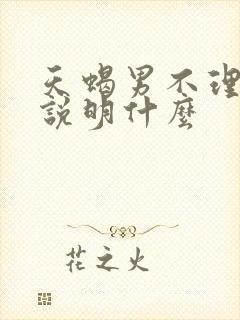 天蝎男不理
說明什麼
花之火